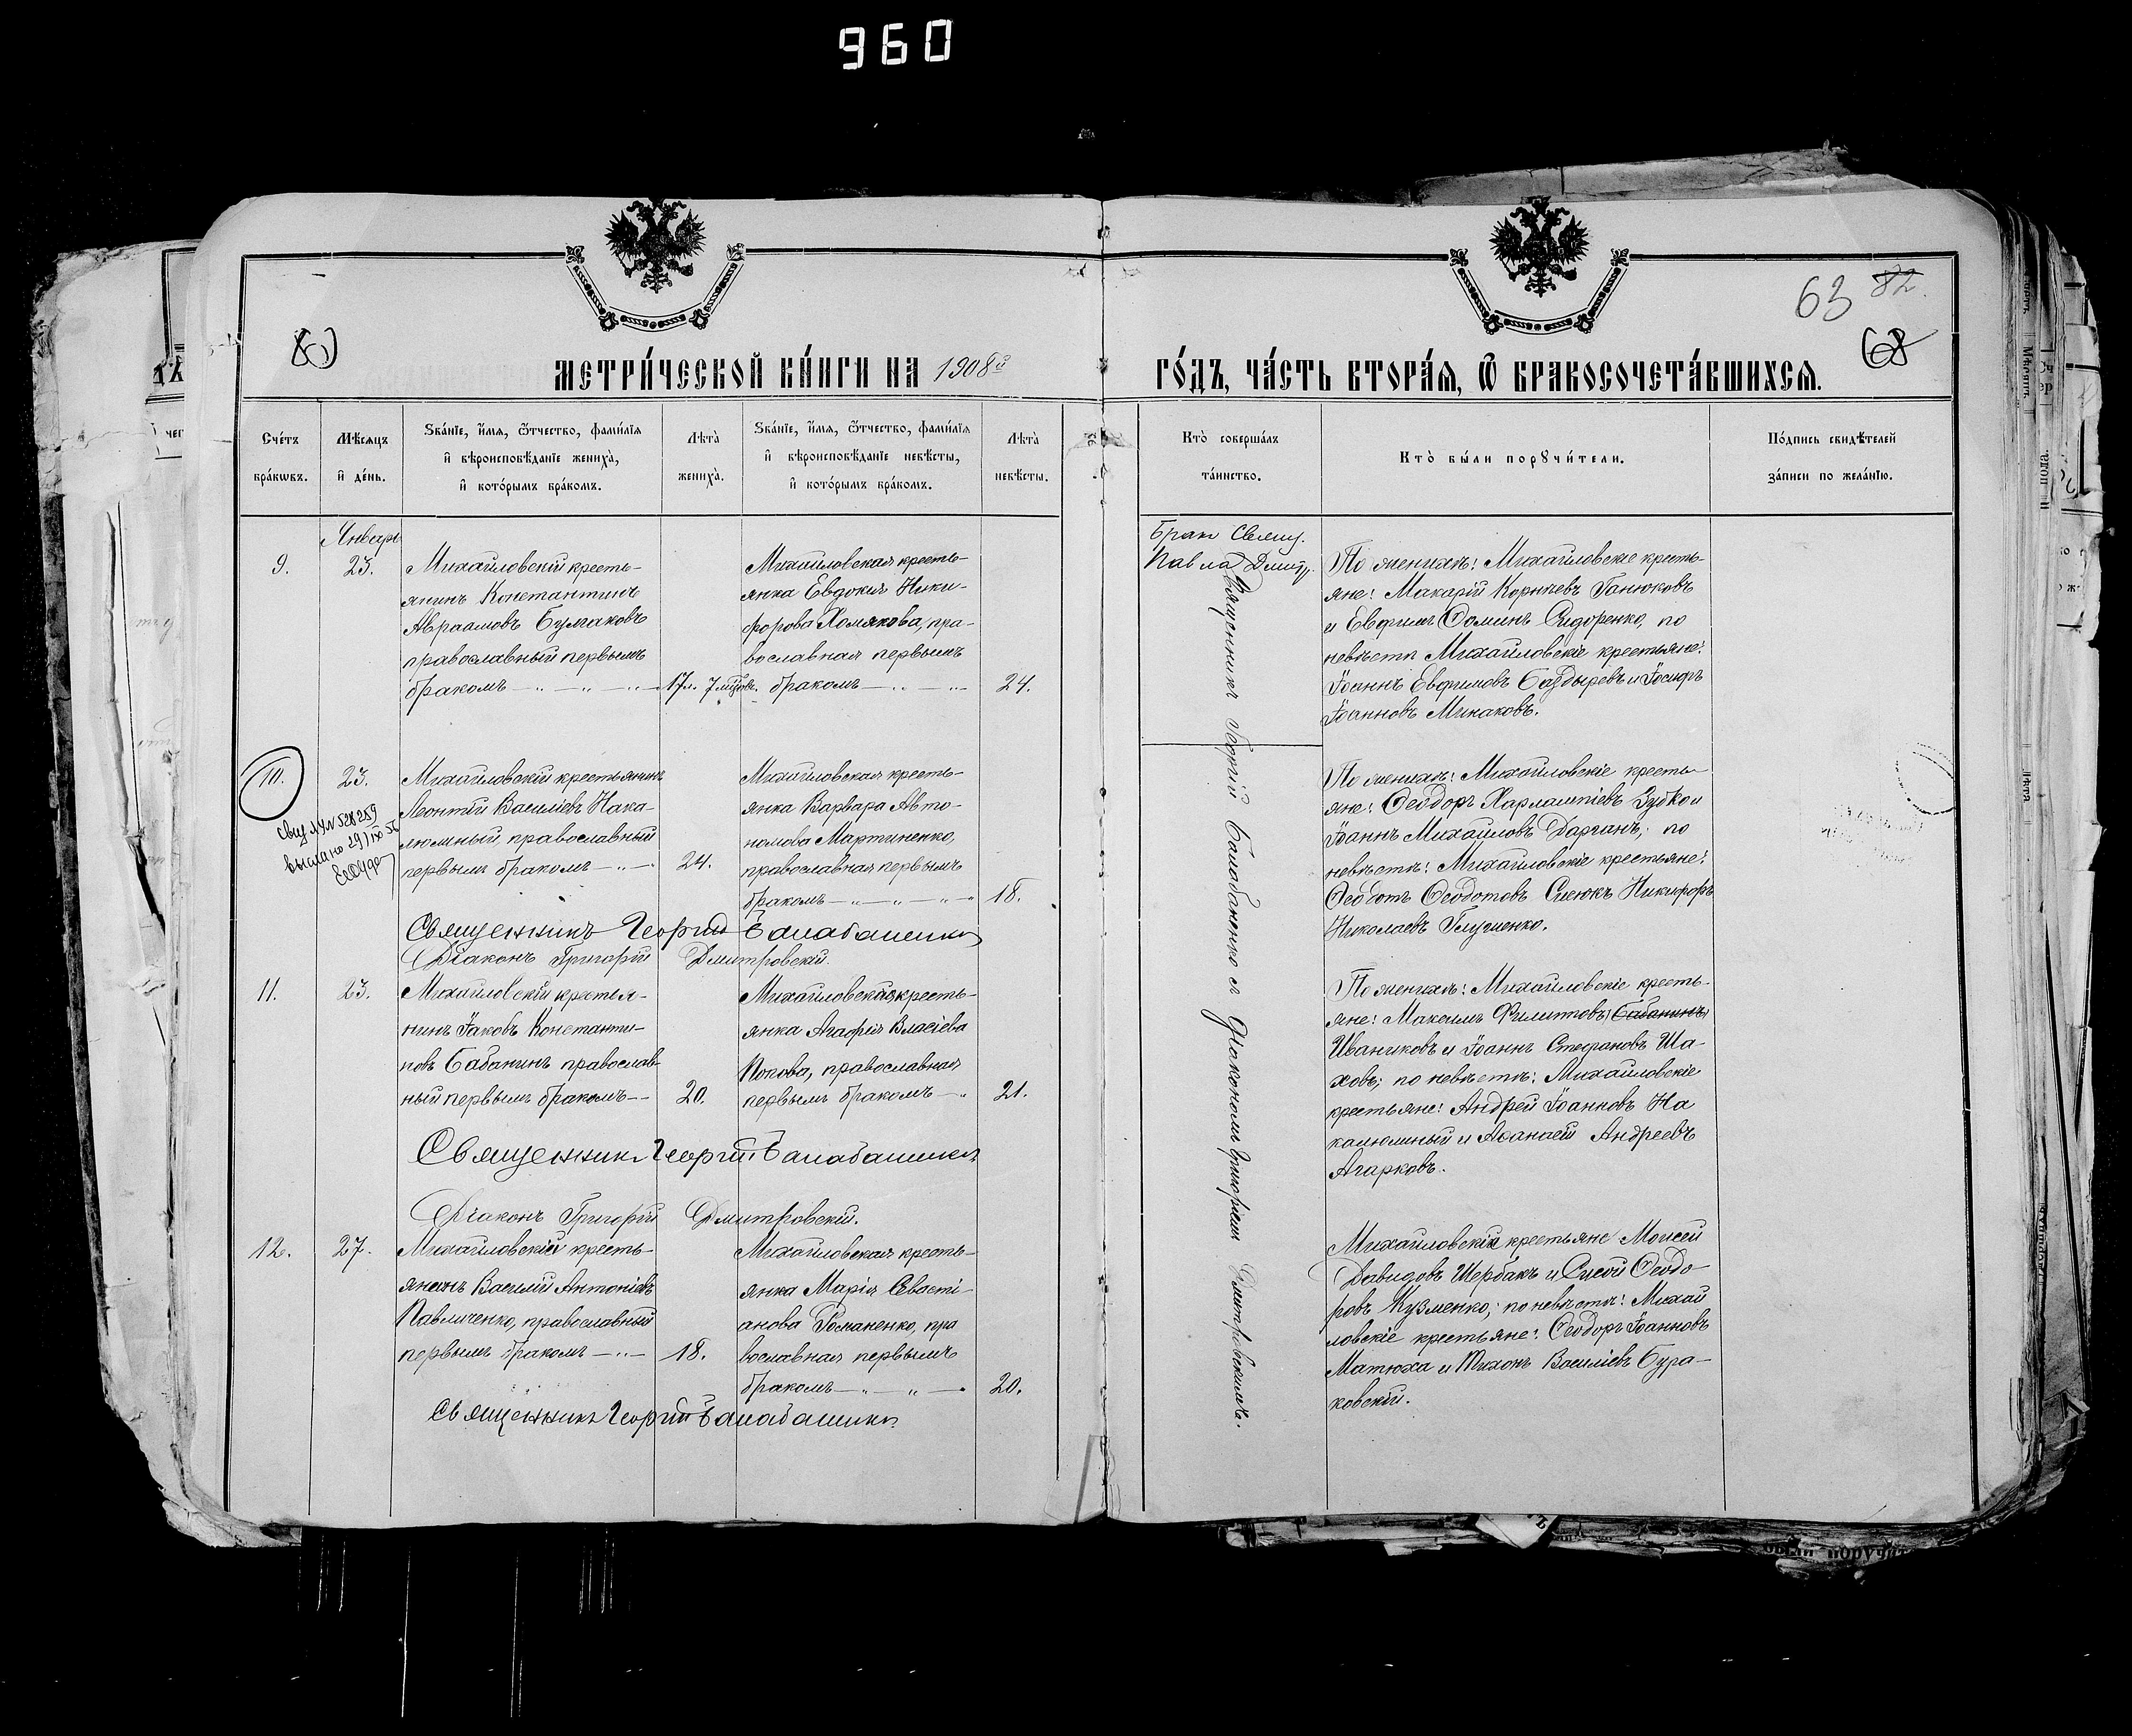 960
63 82
68
МЕТРИ́ЧЕСКОЙ КНИ́ГИ НА 1908й ГО́ДЪ, ЧА́СТЬ ВТОРА́Я, Ѿ БРАКОСОЧЕТА́ВШИХСЯ.
Сче́тъ бра́кѡвъ.
Мѣ́сяцъ и҆ де́нь.
Ѕва́нїе, и҆́мя, ѻ҆́тчество, фами́лїя
и҆ вѣроисповѣ́данїе жениха̀,
и҆ кото́рымъ бра́комъ.
Лѣ́та жениха̀.
Ѕва́нїе, и҆́мя, ѻ҆́тчество, фами́лїя
и҆ вѣроисповѣ́данїе невѣ́сты,
и҆ кото́рымъ бра́комъ.
Лѣ́та невѣ́сты.
Кто̀ соверша́лъ
та́инство.
Кто̀ бы́ли порꙋчи́тели.
По́дпись свидѣ́телей
за́писи по жела́нїю.
Январь
9.
23.
Михайловскій кресть-
янинъ Константинъ
Авраамовъ Булгаковъ
православный первымъ
бракомъ
17 л. 7 мѣс.
Михайловская кресть-
янка Евдокія Ники-
форова Хомякова, пра-
вославная первымъ
бракомъ
24.
Брак Свящ.
Павла Дмитр.
Священникъ Георгій Балабаненко съ Діакономъ Григоріемъ Дмитровскимъ.
По женихѣ: Михайловскіе кресть-
яне: Макарій Корніевъ Ганюковъ
и Евфимъ Ѳоминъ Сидоренко, по
невѣстѣ Михайловскіе крестьяне:
Іоаннъ Евфимовъ Баздыревъ и Іосифъ
Іоанновъ Минаковъ.
10.
23.
высылано 29/IX 56
Михайловскій крестьянинъ
Леонтій Василіевъ Нака-
люжный, православный
первымъ бракомъ
24.
Михайловская кресть-
янка Варвара Авто-
номова Мартыненко,
православная первымъ
бракомъ
18.
По женихѣ: Михайловскіе кресть-
яне: Ѳеодоръ Харлампіевъ Зубко и
Іоаннъ Михайловъ Дарганъ; по
невѣстѣ: Михайловскіе крестьяне:
Ѳеодотъ Ѳеодотовъ Сиѣюкъ Никифоръ
Николаевъ Глущенко.
Священникъ Георгій Балабаненко
Діаконъ Григорій Дмитровскій.
11.
23.
Михайловскій крестья-
нинъ Іаковъ Константи-
новъ Бабанинъ православ-
ный первымъ бракомъ
20.
Михайловская кресть-
янка Агафія Власіева
Попова, православная
первымъ бракомъ
21.
По женихѣ: Михайловскіе кресть-
яне: Максимъ Филиповъ Бабанинъ
Иваниковъ и Іоаннъ Стефановъ Ша-
ховъ; по невѣстѣ: Михайловскіе
крестьяне: Андрей Іоанновъ На
калюжный и Аѳанасій Андреевъ
Агарковъ.
Священникъ Георгій Балабаненко
Діаконъ Григорій Дмитровскій.
12.
27.
Михайловскій кресть-
янинъ Василій Антоніевъ
Павличенко, православный
первымъ бракомъ
18.
Михайловская кресть-
янка Марія Севасті-
анова Романенко, пра
вославная первымъ
бракомъ
20.
Михайловскіе крестьяне Моисей
Давидовъ Щербакъ и Сисой Ѳеодо-
ровъ Кузменко; по невѣстѣ: Михай
ловскіе крестьяне: Ѳеодоръ Іоанновъ
Матюха и Тихонъ Василіевъ Бура-
ковскій.
Священникъ Георгій Балабаненко